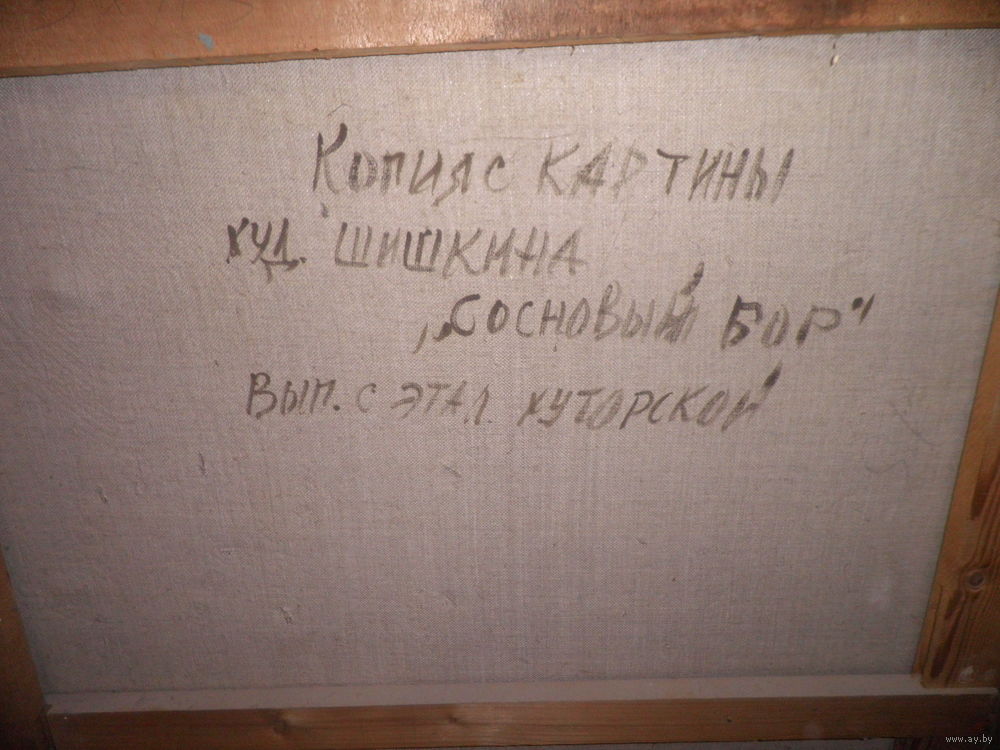 Копия с КАРТИНЫ
худ. ШИШКИНА
„Сосновый БОР“
Вып. с ЭТАЛ. ХУТОРСКОЙ
www.ay.by